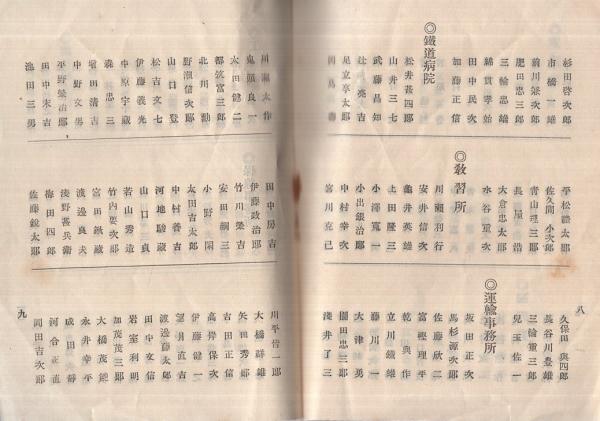 杉田啓次郎
市橋一雄
前川築次郎
肥田忠三郎
三輪忠端
綿貫孝始
田中民次
加藤正信
◎鐵道病院
松井甚四郎
山井三七
武藤昌知
辻亮吉
足立享太郎
平松謙太郎
佐久間小次郎
青山理三郎
長屋浩
大倉忠太郎
水谷重次
◎敎習所
川瀬利行
安井信次
龜井英雄
上田隆三
小澤寬一
小出銀治郎
中村幸次
宮川克已
八
久保田與四郎
長谷川豊雄
三輪重三郎
兒玉佐一
◎運輸事務所
坂田正次
馬杉源次郎
佐藤欣二
富樫理平
乾與作
立川鐵雄
藤川一
大津勇
棚田忠三郎
淺井了三
川瀬太作
鬼頭良一
太田健二
都筑富三郎
北川勳
野瀬信次郎
山口登
松吉文七
伊藤義光
中原宇藏
森忠三
増田清吉
中野文男
平野榮治郎
田中末吉
池田三男
田中房吉
伊藤政治郎
竹川榮吉
安田嗣三
小野閑
太田吉太郎
中村善吉
河地駿藏
山口貞
若山秀造
竹内要次郎
富田鐵藏
渡邊良夫
淺野喜兵衞
梅田四郎
佐藤銳太郎
川平晋一郎
大橋祥雄
矢田秀郎
吉田正信
高岸保次
伊藤健一
望月直吉
渡邊藤太郎
田中文信
岩室利明
加茂茂三郎
大橋茂雄
永井幸平
成田靜
河合正直
岡田吉次郎
九